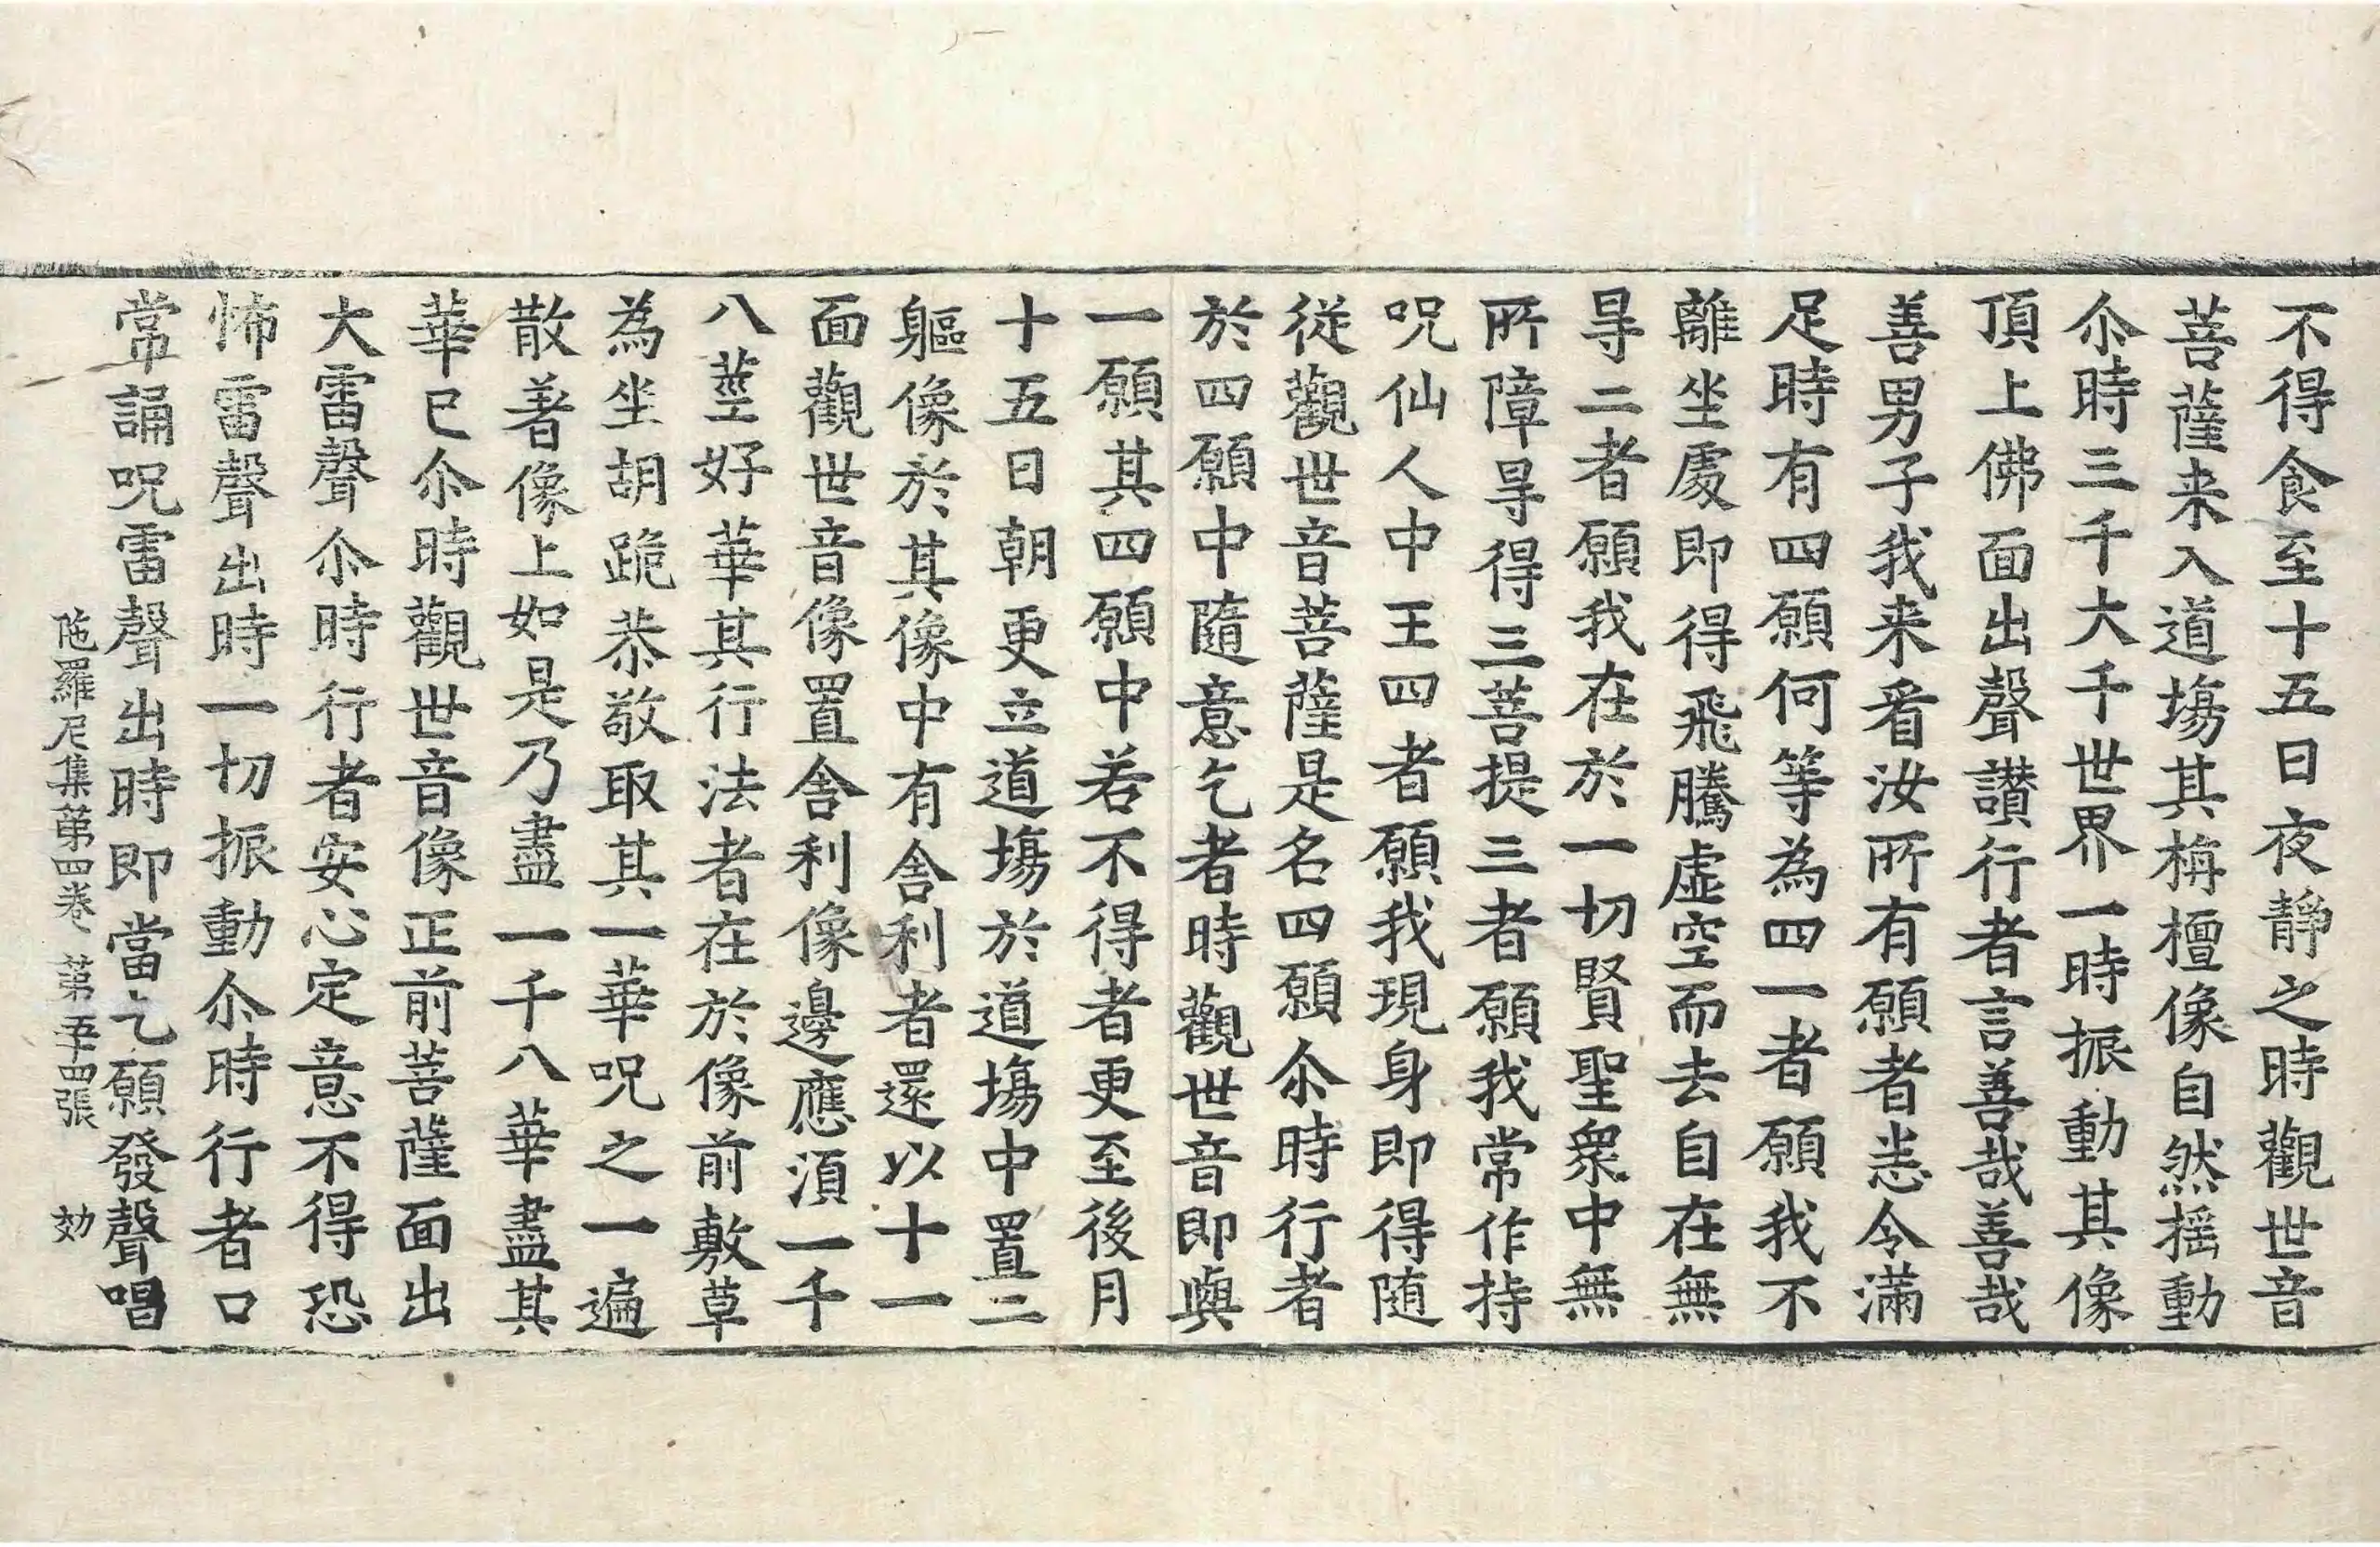 不得食至十五日夜靜之時觀世音
菩薩来入道場其栴檀像自然揺動
尒時三千大千世界一時振動其像
頂上佛面出聲讃行者言善哉善哉
善男子我来看汝所有願者恙令滿
足時有四願何等為四一者願我不
離坐處即得飛騰虛空而去自在無
㝵二者願我在於一切賢聖衆中無
所障㝵得三菩提三者願我常作持
呪仙人中王四者願我現身即得随
從觀世音菩薩是名四願尒時行者
於四願中隨意乞者時觀世音即與
一願其四願中若不得者更至後月
十五日朝更立道場於道場中置二
軀像於其像中有舍利者還以十一
面觀世音像置舍利像邊應湏一千
八莖好華其行法者在於像前敷草
為坐胡跪恭敬取其一華呪之一遍
散著像上如是乃盡一千八華盡其
華已尒時觀世音像正前菩薩面出
大雷聲尒時行者安心定意不得恐
怖雷聲出時一切振動尒時行者口
常誦呪雷聲出時即當乞願發聲唱
陁羅尼集第四卷 第五十四張 効